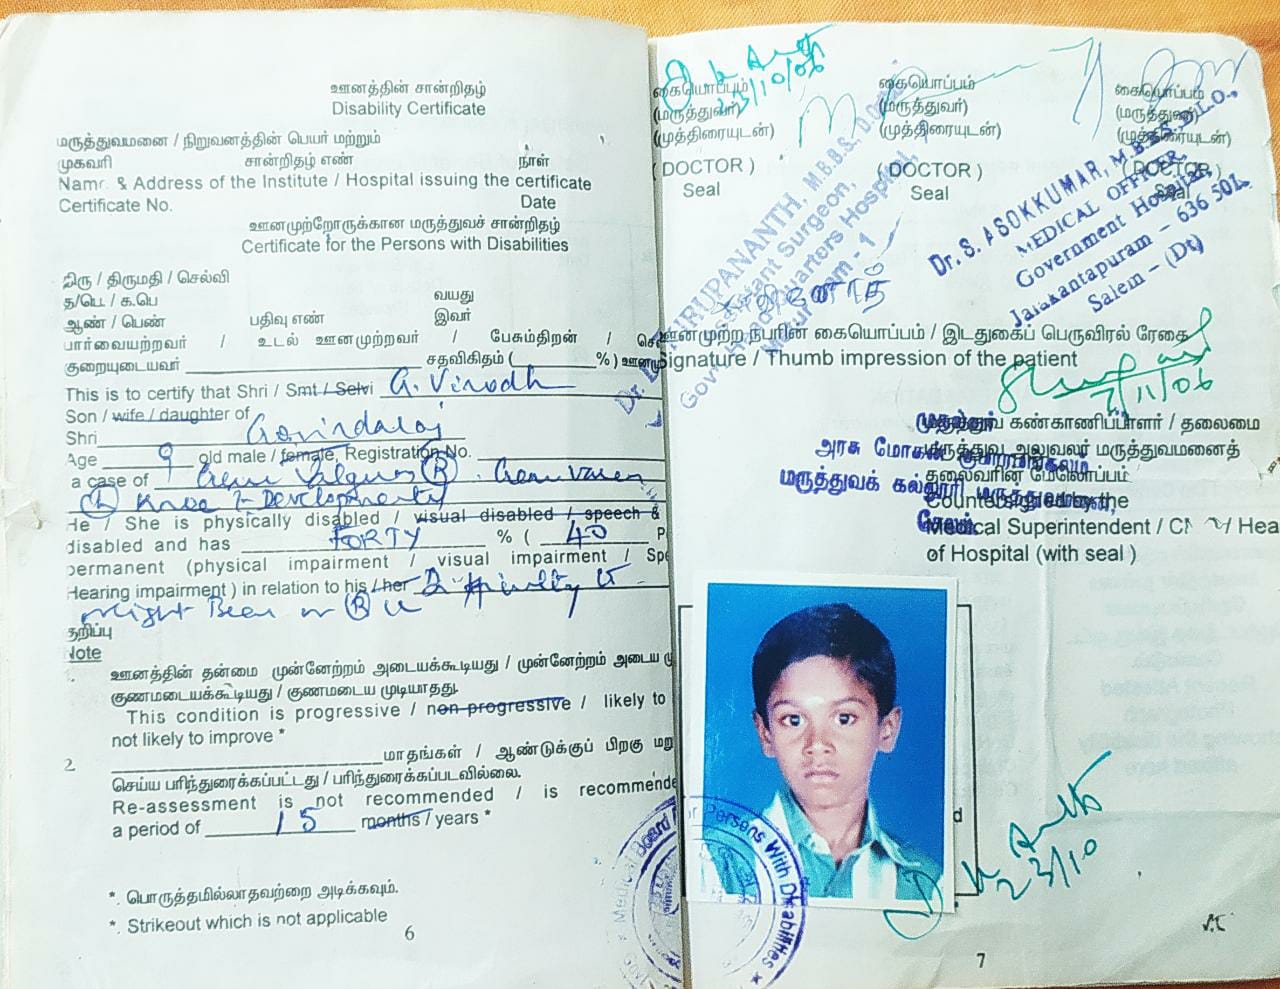 ஊனத்தின் சான்றிதழ்
Disability Certificate
மருத்துவமனை / நிறுவனத்தின் பெயர் மற்றும்
முகவரி சான்றிதழ் எண் நாள்
Namr. & Address of the Institute / Hospital issuing the certificate
Certificate No. Date
ஊனமுற்றோருக்கான மருத்துவச் சான்றிதழ்
Certificate for the Persons with Disabilities
திரு / திருமதி / செல்வி
த/பெ / க.பெ வயது
ஆண் / பெண் பதிவு எண் இவர்
பார்வையற்றவர் / உடல் ஊனமுற்றவர் / பேசும்திறன் /
குறையுடையவர் சதவிகிதம் ( %)
This is to certify that Shri / Smt / Selvi G. Vinodh
Son / wife / daughter of
Shri Govindaraj
Age 9 old male / female, Registration No.
a case of Genu Valgus (R) Genu Varum
(L) Knee ?-Developmental
He / She is physically disabled / visual disabled / speech &
disabled and has FORTY % ( 40
permanent (physical impairment / visual impairment /
Hearing impairment ) in relation to his / her Difficulty to
weight Bear in (R)
குறிப்பு
Note
1. ஊனத்தின் தன்மை முன்னேற்றம் அடையக்கூடியது / முன்னேற்றம் அடைய
குணமடையக்கூடியது / குணமடைய முடியாதது.
This condition is progressive / non progressive / likely to
not likely to improve *
2. மாதங்கள் / ஆண்டுக்குப் பிறகு
செய்ய பரிந்துரைக்கப்பட்டது / பரிந்துரைக்கப்படவில்லை.
Re-assessment is not recommended / is
a period of 15 months / years *
*. பொருத்தமில்லாதவற்றை அடிக்கவும்.
*. Strikeout which is not applicable
6
23/10/06
கையொப்பம் கையொப்பம் கையொப்பம்
(மருத்துவர்) (மருத்துவர்) (மருத்துவர்)
(முத்திரையுடன்) (முத்திரையுடன்) (முத்திரையுடன்)
( DOCTOR ) ( DOCTOR ) ( DOCTOR )
Seal Seal Seal
M.B.B.S., D.Ortho.
Assistant Surgeon,
Headquarters Hospital,
Dr. S. ASOKKUMAR, M.B.B.S., D.L.O.,
MEDICAL OFFICER,
Government Hospital,
Jalakantapuram - 636 501.
Salem - (Dt)
வினோத்
ஊனமுற்ற நபரின் கையொப்பம் / இடதுகைப் பெருவிரல் ரேகை
Signature / Thumb impression of the patient
7/11/06
முதல்வர்
அரசு மோகன் குமாரமங்கலம்
மருத்துவக் கல்லூரி மருத்துவமனை,
சேலம்
மருத்துவ கண்காணிப்பாளர் / தலைமை
மருத்துவ அலுவலர் மருத்துவமனைத்
தலைவரின் மேலொப்பம்
Countersigned by the
Medical Superintendent / CMO / Head
of Hospital (with seal )
Medical Board for Persons With Disabilities
23/10
7